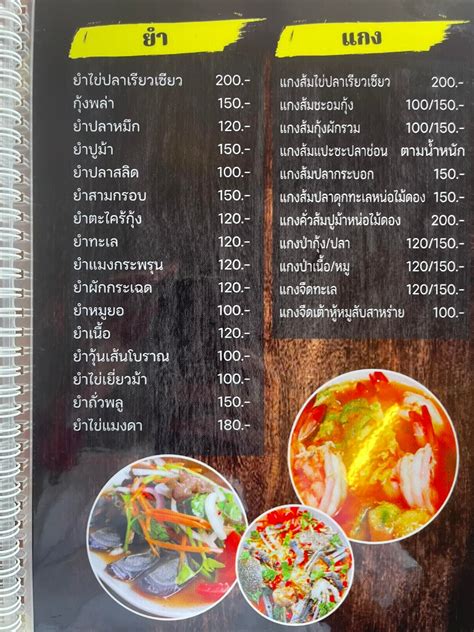 ยำ
ยำไข่ปลาเรียวเซียว 200.-
กุ้งพล่า 150.-
ยำปลาหมึก 120.-
ยำปูม้า 150.-
ยำปลาสลิด 100.-
ยำสามกรอบ 150.-
ยำตะไคร้กุ้ง 120.-
ยำทะเล 120.-
ยำแมงกระพรุน 120.-
ยำผักกระเฉด 120.-
ยำหมูยอ 100.-
ยำเนื้อ 120.-
ยำวุ้นเส้นโบราณ 100.-
ยำไข่เยี่ยวม้า 100.-
ยำถั่วพลู 150.-
ยำไข่แมงดา 180.-
แกง
แกงส้มไข่ปลาเรียวเซียว 200.-
แกงส้มชะอมกุ้ง 100/150.-
แกงส้มกุ้งผักรวม 100/150.-
แกงส้มแปะซะปลาช่อน ตามน้ำหนัก
แกงส้มปลากระบอก 150.-
แกงส้มปลาดุกทะเลหน่อไม้ดอง 150.-
แกงคั่วส้มปูม้าหน่อไม้ดอง 200.-
แกงป่ากุ้ง/ปลา 120/150.-
แกงป่าเนื้อ/หมู 120/150.-
แกงจืดทะเล 120/150.-
แกงจืดเต้าหู้หมูสับสาหร่าย 100.-